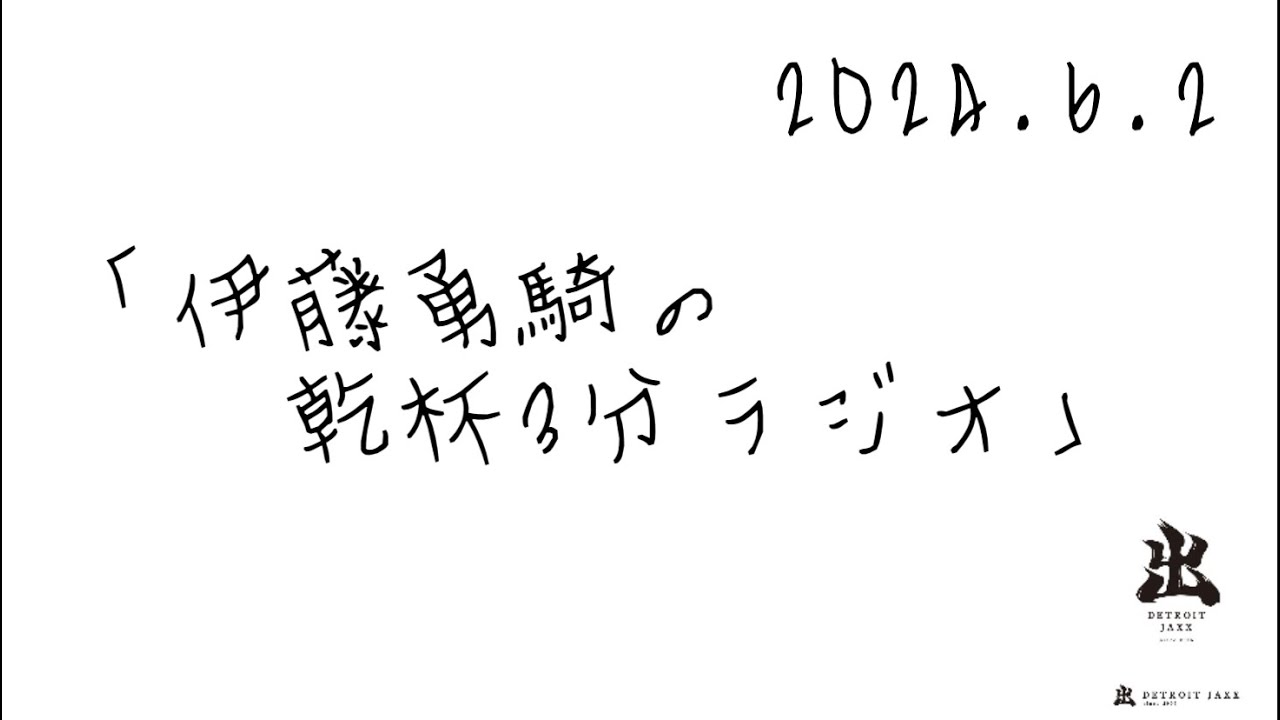 2024.6.2
「伊藤勇騎の
乾杯3分ラジオ」
出
DETROIT
JAXX
出 DETROIT JAXX